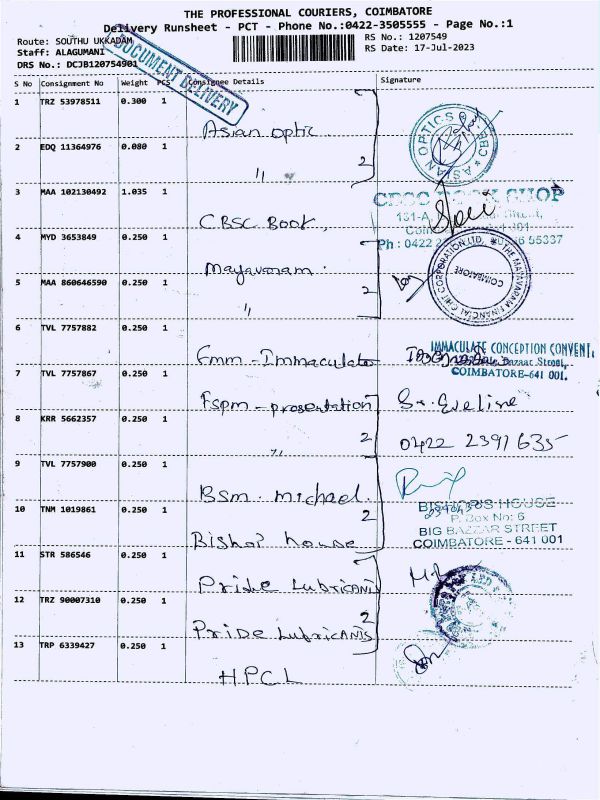 THE PROFESSIONAL COURIERS, COIMBATORE
Delivery Runsheet - PCT - Phone No.:0422-3505555 - Page No.:1
Route: SOUTHU UKKADAM
RS No.: 1207549
Staff: ALAGUMANI
RS Date: 17-Jul-2023
DRS No.: DCJB120754901
DOCUMENT DELIVERY
S No Consignment No Weight PCS Consignee Details Signature
1 TRZ 53978511 0.300 1
Asian optic
ASIAN OPTICS CBE
2 EDQ 11364976 0.080 1
" 2
3 MAA 102130492 1.035 1
CBSC BOOK SHOP
131-A, Street,
CBSC Book,
Ph : 0422 55337
4 MYD 3653849 0.250 1
Mayavaram.
THE MAYAVARAM FINANCIAL CHIT CORPORATION LTD. COIMBATORE
5 MAA 860646590 0.250 1
" 2
6 TVL 7757882 0.250 1
Emm - Immaculate
IMMACULATE CONCEPTION CONVENT,
Bazaar Street,
COIMBATORE-641 001.
7 TVL 7757867 0.250 1
Fspm - presentation
Sr. Eveline
8 KRR 5662357 0.250 1
" 2
0422 2391635
9 TVL 7757900 0.250 1
BSM. Michael.
2
BISHOP'S HOUSE
P. Box No: 6
BIG BAZAAR STREET
COIMBATORE - 641 001
10 TNM 1019861 0.250 1
Bishop house
11 STR 586546 0.250 1
Pride Lubricants
12 TRZ 90007310 0.250 1
2
Pride Lubricants
13 TRP 6339427 0.250 1
HPCL